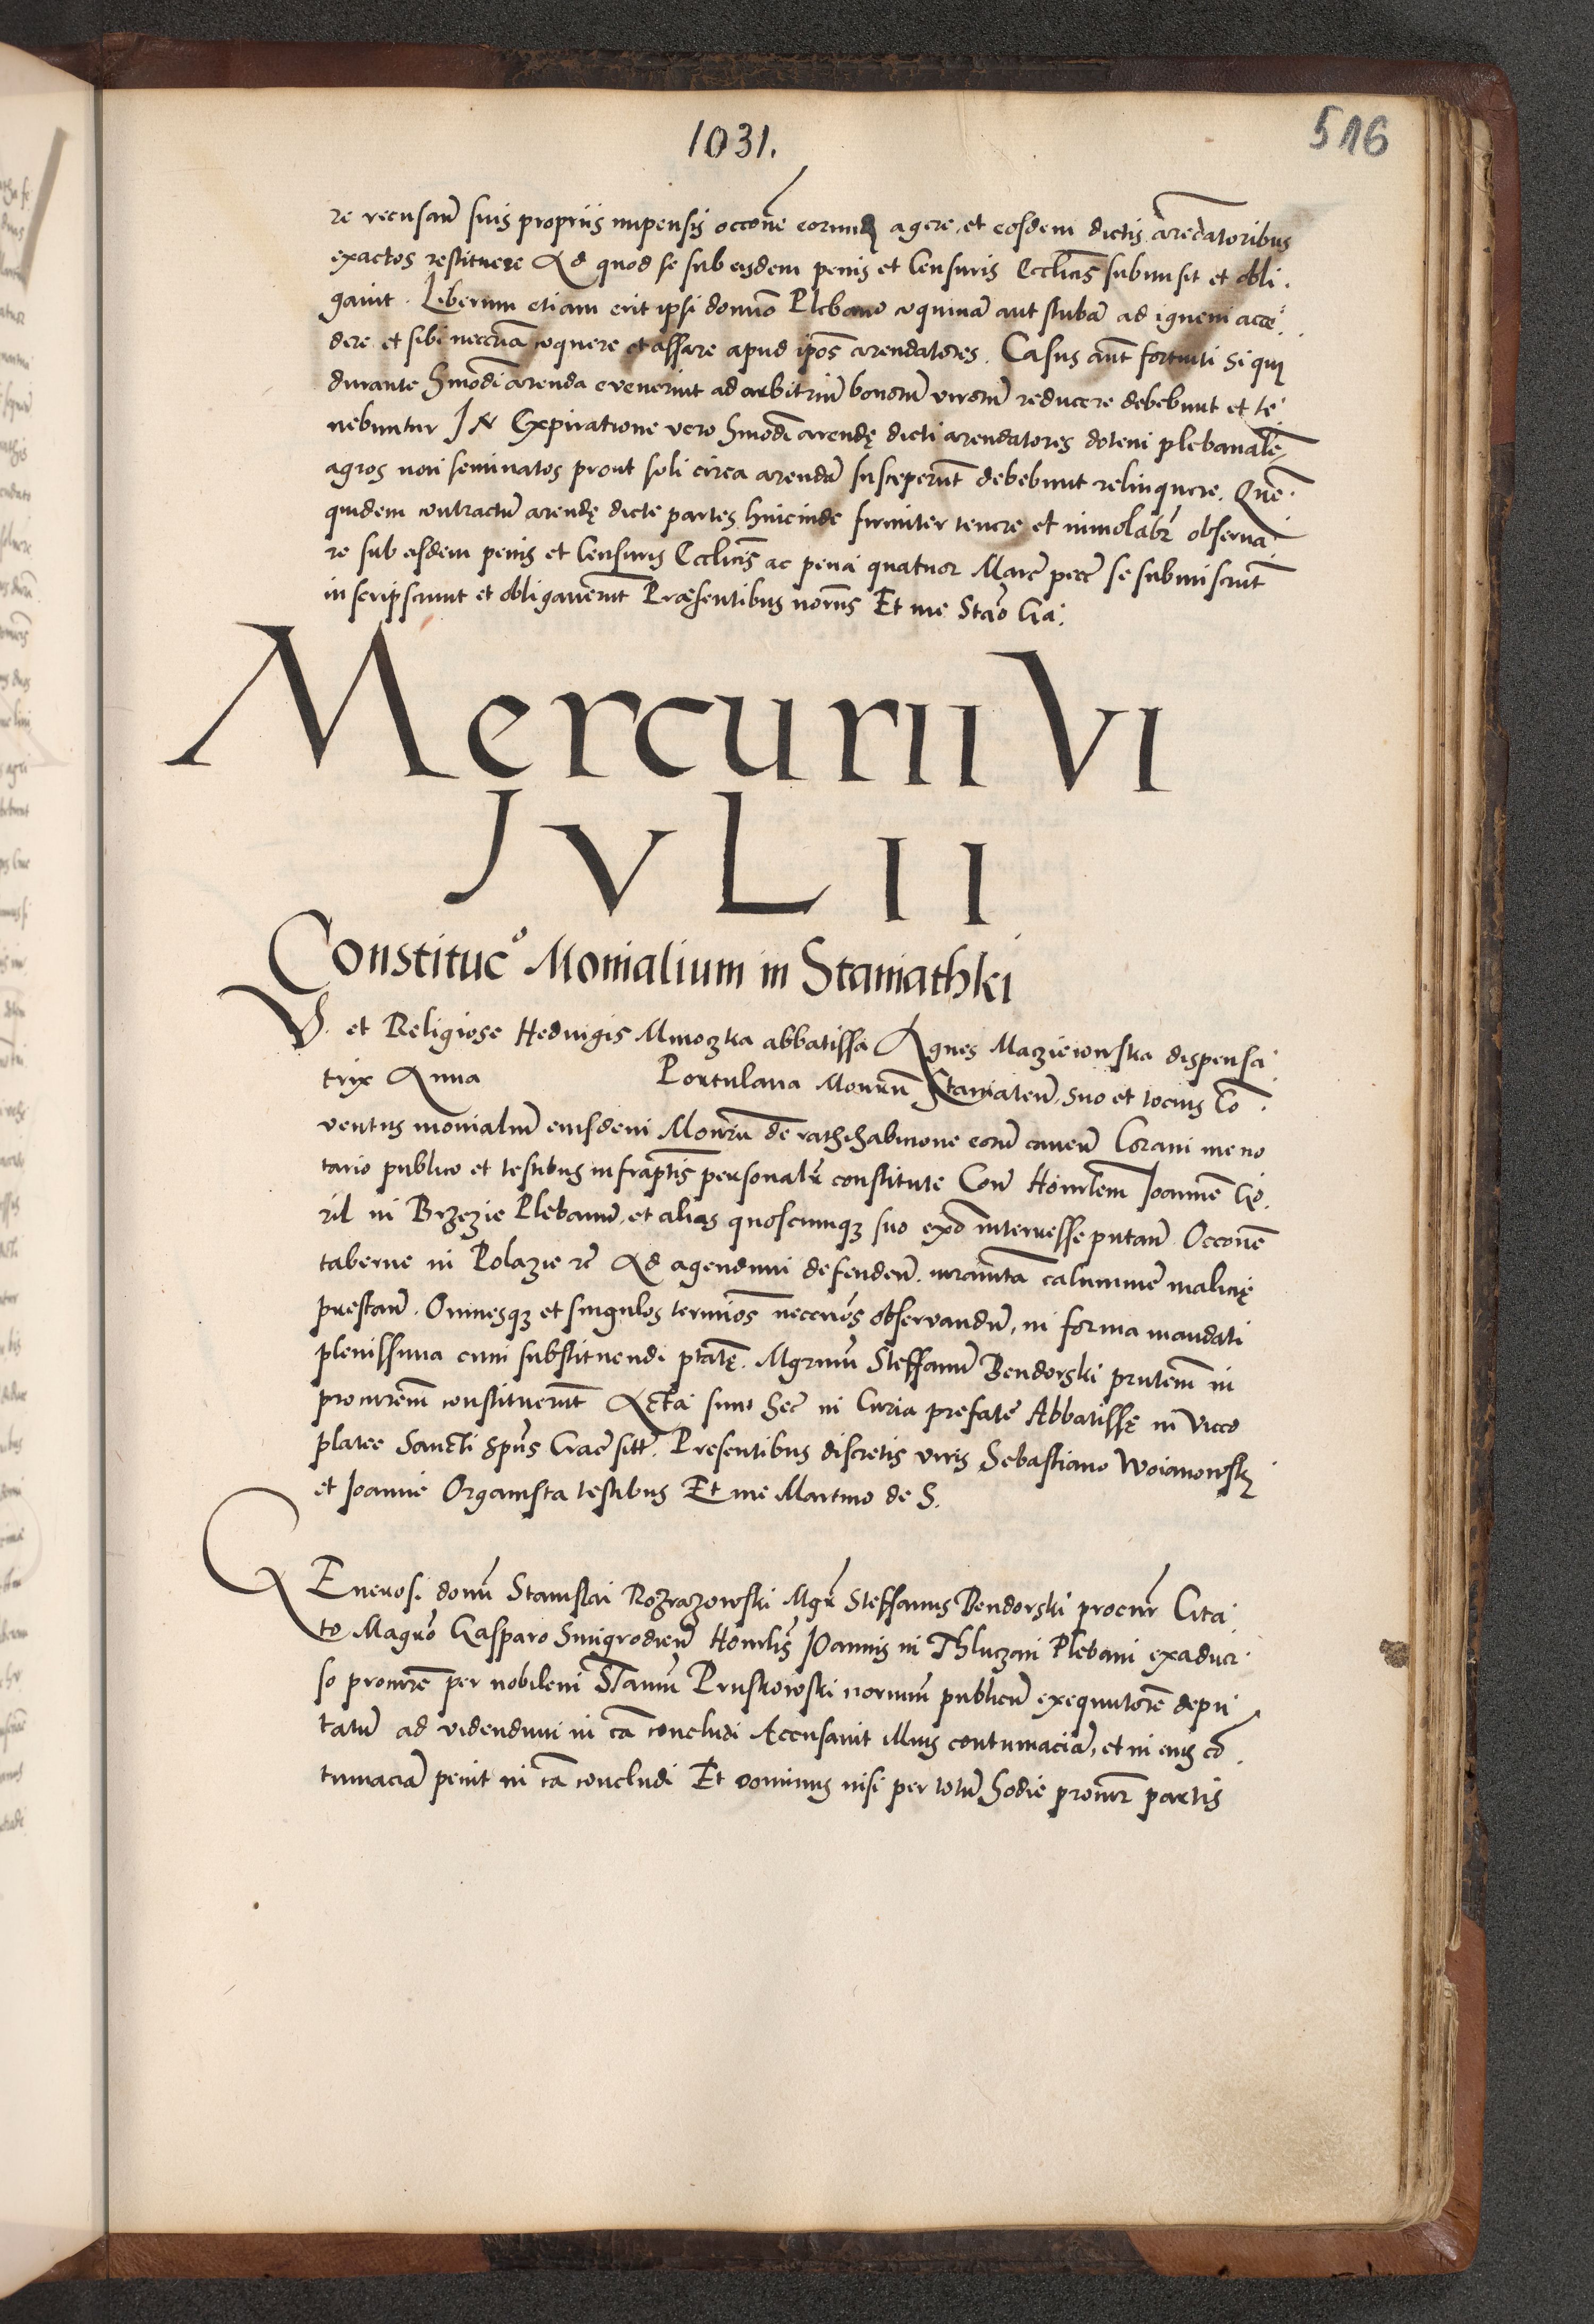 1031.
516
re recusañ suis propriis impensis occone eorundem agere, et eosdem dictis arendatoribus
exactos restituere Ad quod se sub eisdem penis et Censuris Ecclicis submisit et obli
gavit. Liberum etiam erit ipsi domino Plebano coquinā aut stubā ad ignem acce
dere et sibi necc̄ria coquere et assare apud ipōs arendatores. Casus aūt fortuiti si qui
durante hmōdi arenda evenerint ad arbitriū bonorū virorū reducere debebunt et te
nebuntur In Expiratione vero hmōdi arendę dicti arendatores dotem plebanalē
agros non seminatos prout soli circa arendā susceperūt debebunt relinquere. Quē
quidem contractū arendę dicte partes hincinde firmiter tenere et inviolabr observa
re sub eisdem penis et Censuris Ecclicis ac pena quatuor Marc̄ pecc̄ se submiserūt
inscripserunt et obligaverūt Præsentibus norīis Et me Stāo Ga.
Mercurii VI
JVLII
Constituc̊ Monialium in Staniathki
V. et Religiose Hedvigis Mmoczka abbatissa Agnes Maczieiowska dispensa
trix Anna Portulana Monrii Staniateñ, suo et tocius Co
ventus monialiū eiusdem Monrii de rathihabitione eorū caveñ Coram me no
tario publico et testibus infraptis personalr constitute Con̄ Honrlem Joannē Go
ril in Brzezie Plebanū, et alias quoscumq̨ suo exō interresse putañ Occonē
taberne in Polazie rc̄ Ad agendum defendeñ. iuramta calumnie malicię
prestañ. Omnesq̨ et singulos termīos necc̄rios observandū, in forma mandati
plenissima cum substituendi ptātę. Mgrum Steffanū Bendorski prntem in
procurem constituerūt Acta sunt hec in Curia prefate Abbatissę in Vicco
platee Sancti Spūs Crac̄ sitt. Presentibus discretis viris Sebastiano Woianowski
et Joanne Organista testibus Et me Martino de S.
GEnerosi domī Stanislai Rozrazowski Mgr Steffanus Bendorski procur Cita
to Magrō Gasparo Smigrodieñ Honrlis Joannis in Thluczani Plebani exadver
so procure per nobilem Stanum Pruskowski norium publicū exequutorē depu
tatū ad videndum in cā concludi Accusavit illius contumaciā, et in eius cō
tumaciā petiit in cā concludi Et dominus nisi per totū hodie procur partis